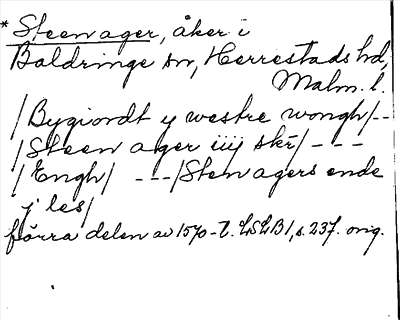 * Steen ager, åker i
Baldringe sn, Herrestads hd,
Malm. l.
/Bygiordt y westre wongh/--
/Steen ager iiij skr/ - - -
/Engh/ - - -/Sten agers ende
j les/
förra delen av 1570-t. LSLB1, s. 237. orig.